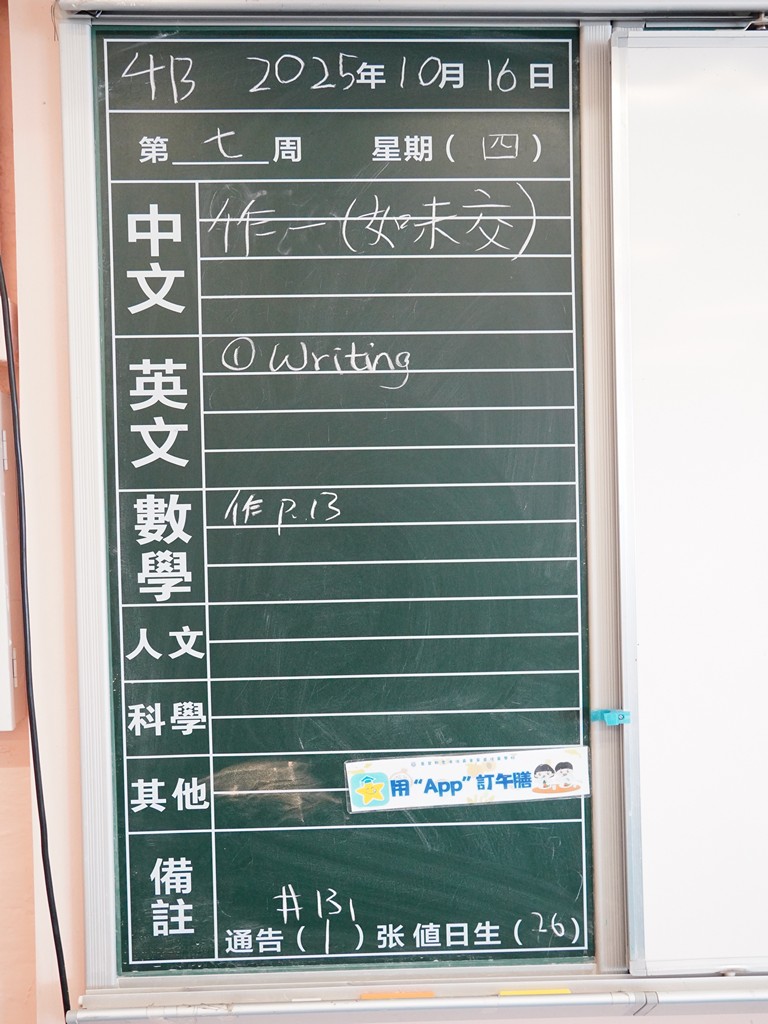 4B 2025年10月16日
第七周 星期(四)
中文 作一(如未交)
英文 ① Writing
數學 作 P.13
人文
科學
其他
用“App”訂午膳
備註 #131
通告(1)张 值日生(26)